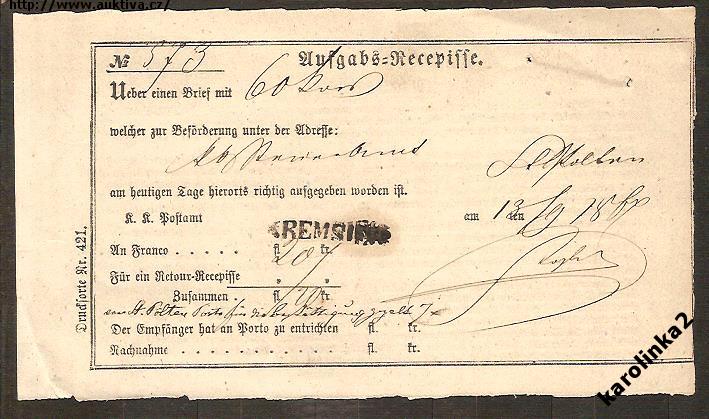 http://www.auktiva.cz/
№ 573 Aufgabs-Recepisse.
Ueber einen Brief mit 60
welcher zur Beförderung unter der Adresse:
St Pölten
am heutigen Tage hierorts richtig aufgegeben worden ist.
K. K. Postamt KREMSIER am 13 ten /9 18
An Franco . . . . . fl. kr.
Für ein Retour-Recepisse " "
Zusammen . fl. kr.
St. Pölten Porto für die
Der Empfänger hat an Porto zu entrichten fl. kr.
Nachnahme . . . . . . . . . . . fl. kr.
Drucksorte Nr. 421.
karolinka2